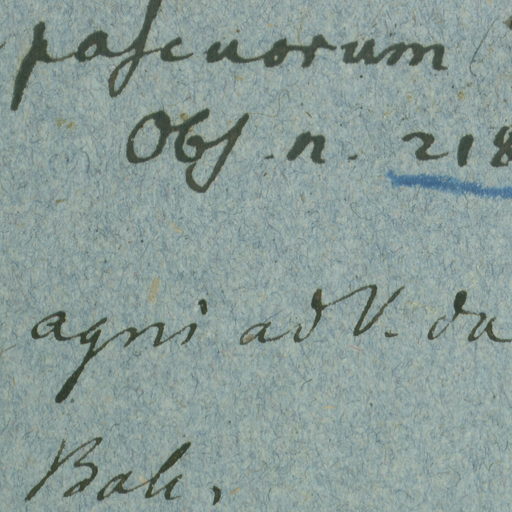 pascuorum
Obs. n. 218
agni ad V. da
Bali,